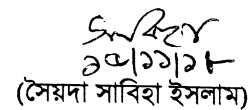 সাবিহা
১৫/১১/১৮
(সৈয়দা সাবিহা ইসলাম)